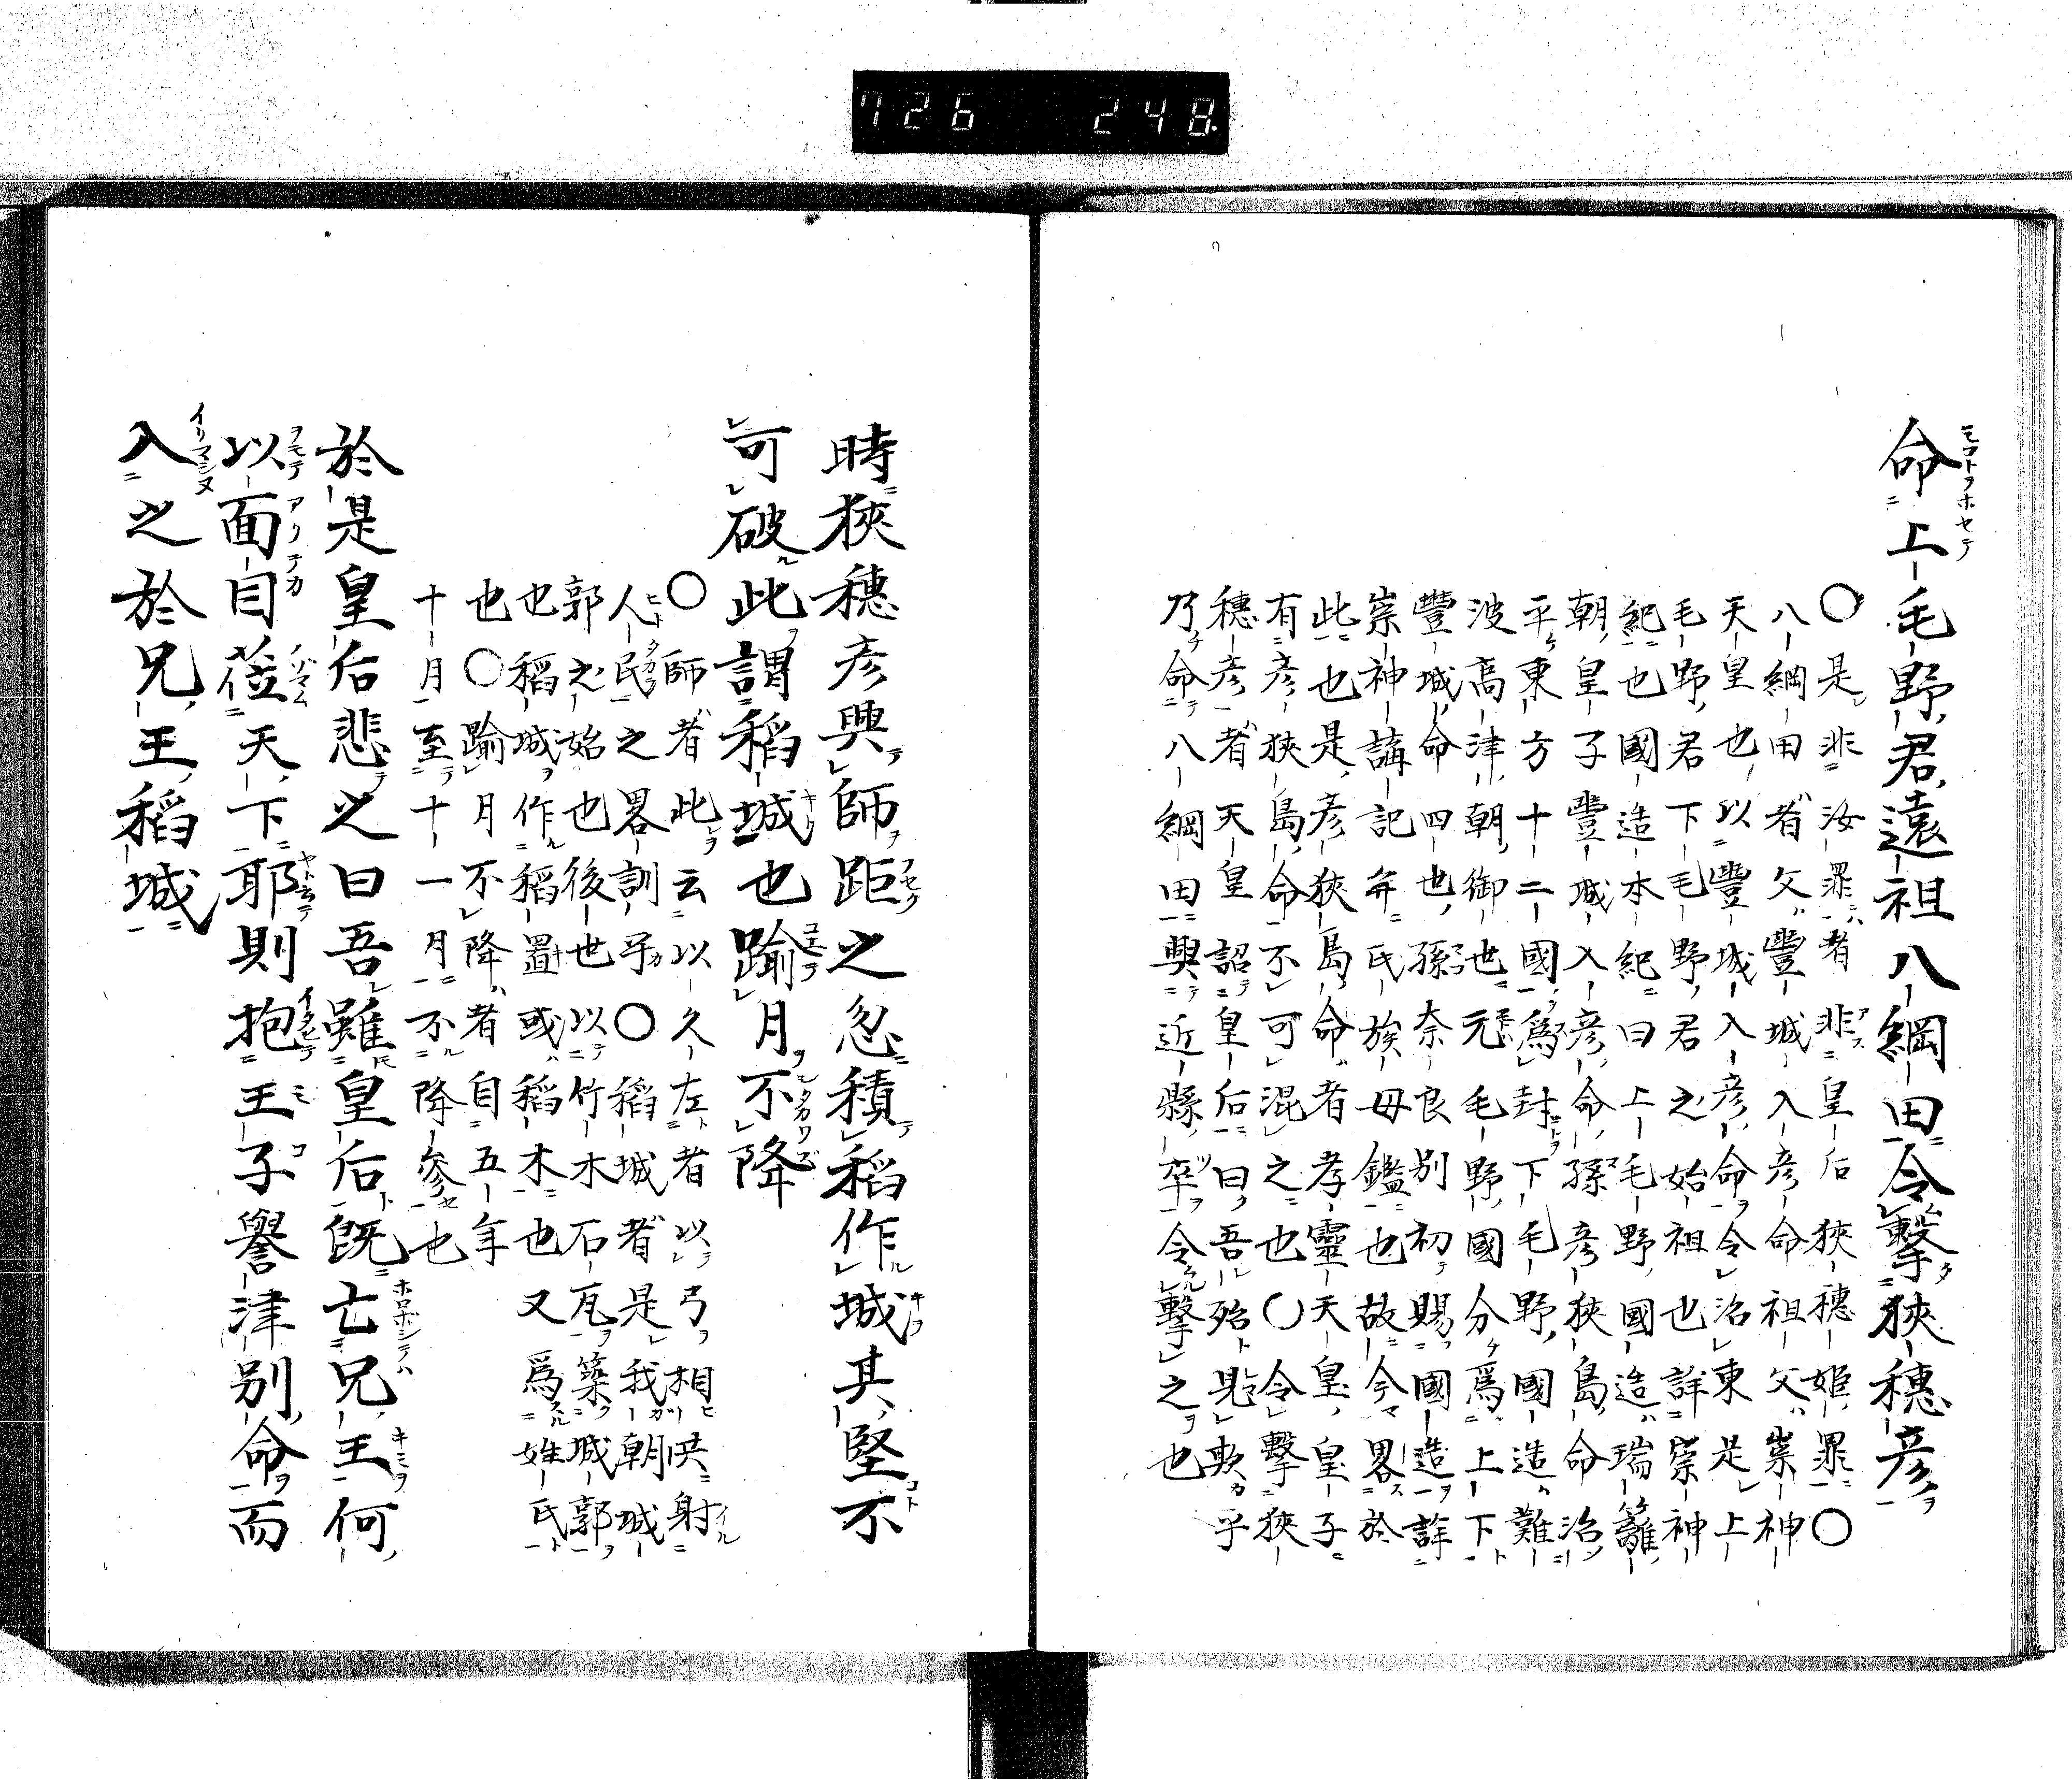 726 248
命上毛野君遠祖八綱田令擊狹穗彦
〇是非汝罪者非皇后狹穗姬罪〇
八綱田者父豐城入彦命祖父崇神
天皇也以豐城入彦命令治東是上
毛野君下毛野君之始祖也詳崇神
紀也國造本紀曰上毛野國造瑞籬
朝皇子豐城入彦命孫彦狹島命治
平東方十二國爲封下毛野國造難
波高津朝御世元毛野國分爲上下
豐城命四世孫奈良別初賜國造詳
崇神講記并氏族母鑑也故今畧於
此也是彦狹島命者孝靈天皇皇子
有彦狹島命不可混之也〇令擊狹
穗彦者天皇詔皇后曰吾殆見欺乎
乃命八綱田興近縣卒令擊之也
時狹穗彦興師距之忽積稻作城其堅不
可破此謂稻城也踰月不降
〇師者此云以久左者以弓相共射
人民之畧訓乎〇稻城者是我朝城
郭之始也後世以竹木石瓦築城郭
也稻城作稻置或稻木也又爲姓氏
也〇踰月不降者自五年
十月至十一月不降參也
於是皇后悲之曰吾雖皇后既亡兄王何
以面目莅天下耶則抱王子譽津別命而
入之於兄王稻城